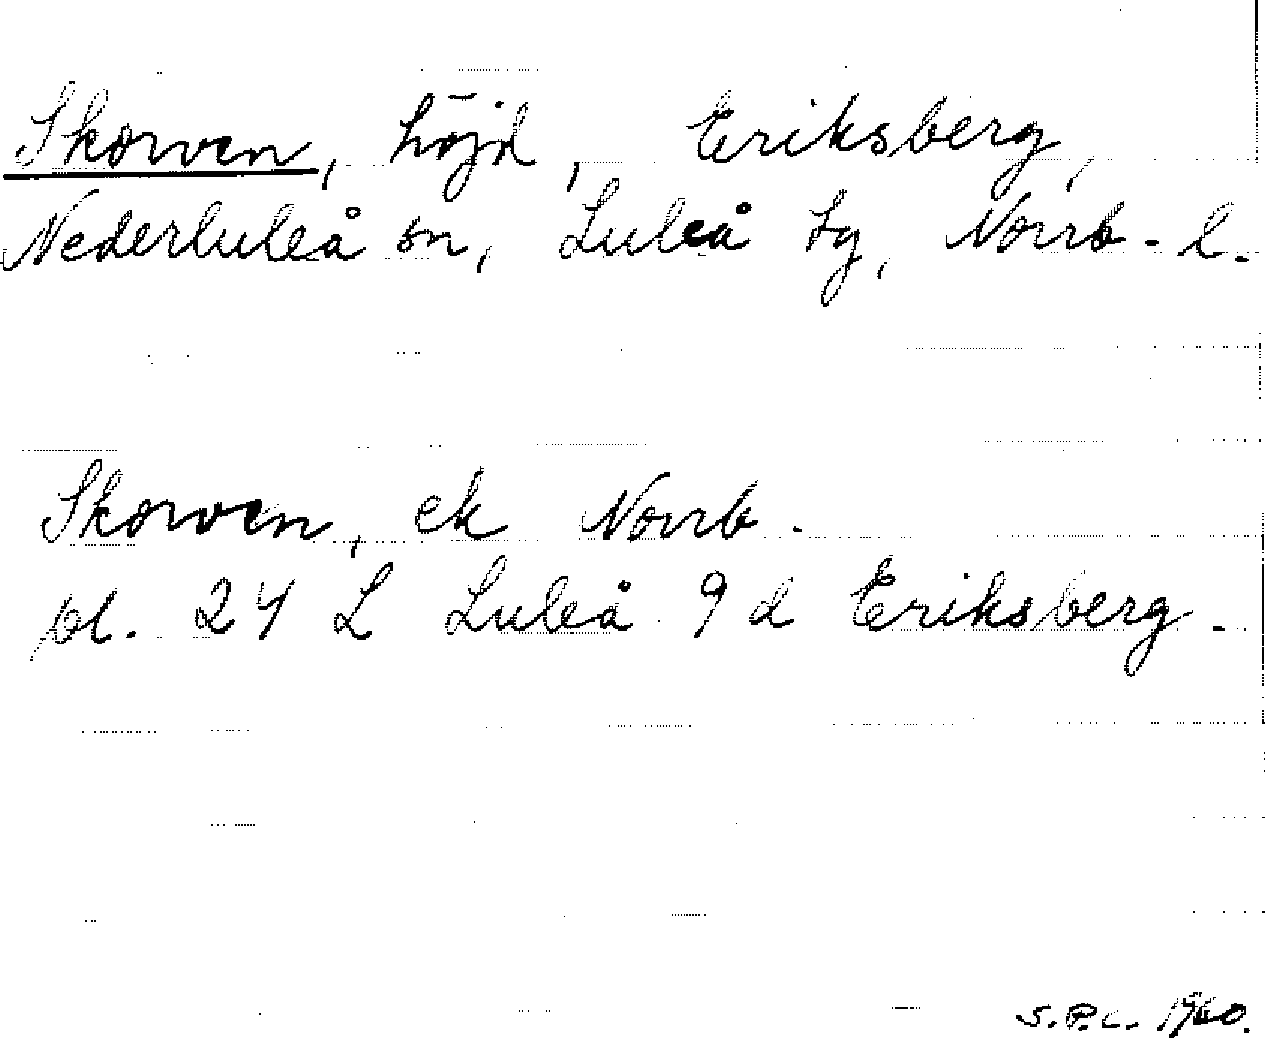 Skorven, höjd, Eriksberg,
Nederluleå sn, Luleå tg, Norrb-l.
Skorven, ek Norrb.
bl. 24 L Luleå 9 d Eriksberg.
S.P.L. 1960.